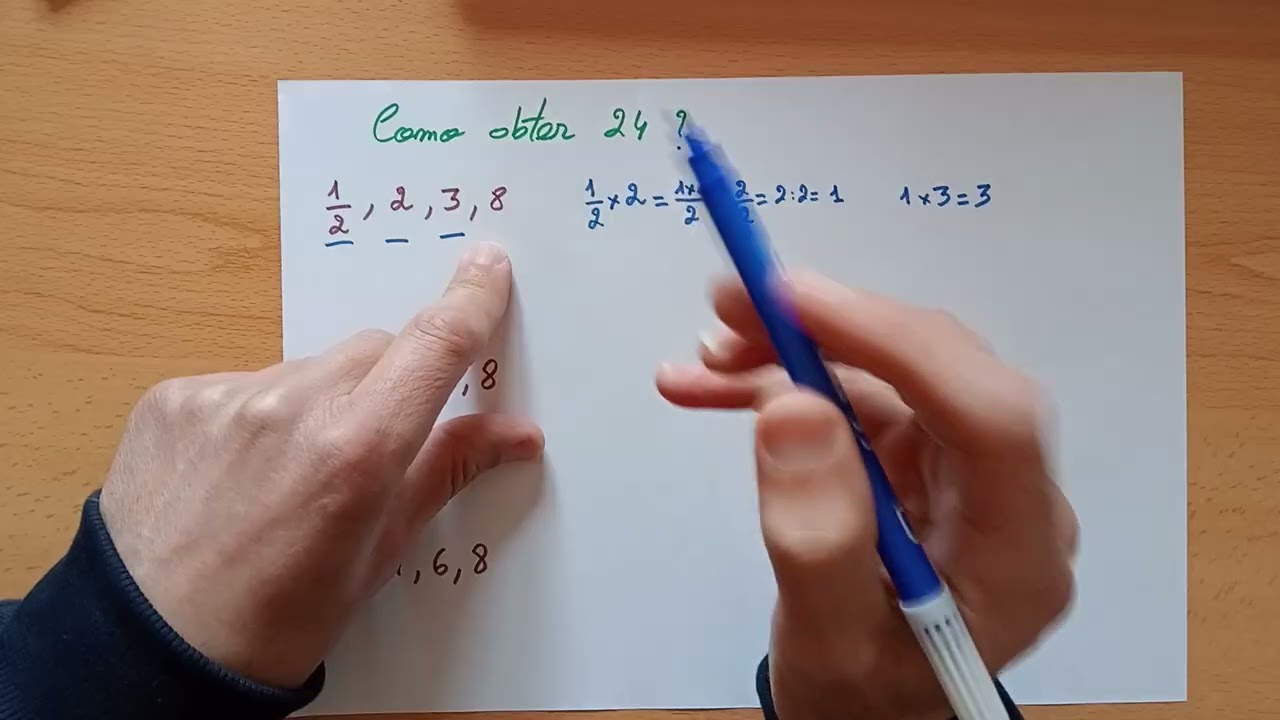 Como obter 24 ?
1/2 , 2 , 3 , 8
1/2 × 2 = 2/2 = 2:2= 1
1 × 3 = 3
, 8
, 6 , 8